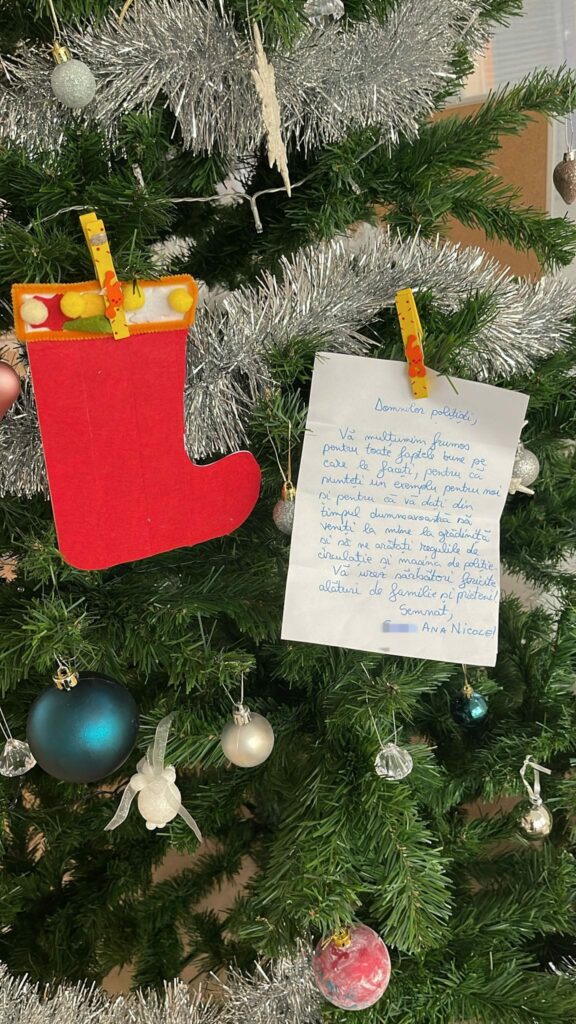 Domnilor polițiști,
Vă mulțumim frumos
pentru toate faptele bune pe
care le faceți, pentru că
sunteți un exemplu pentru noi
și pentru că vă dați din
timpul dumneavoastră să
veniți la mine la grădiniță
și să ne arătați regulile de
circulație și mașina de poliție.
Vă urez sărbători fericite
alături de familie și prieteni!
Semnat,
ANA NICOLE!